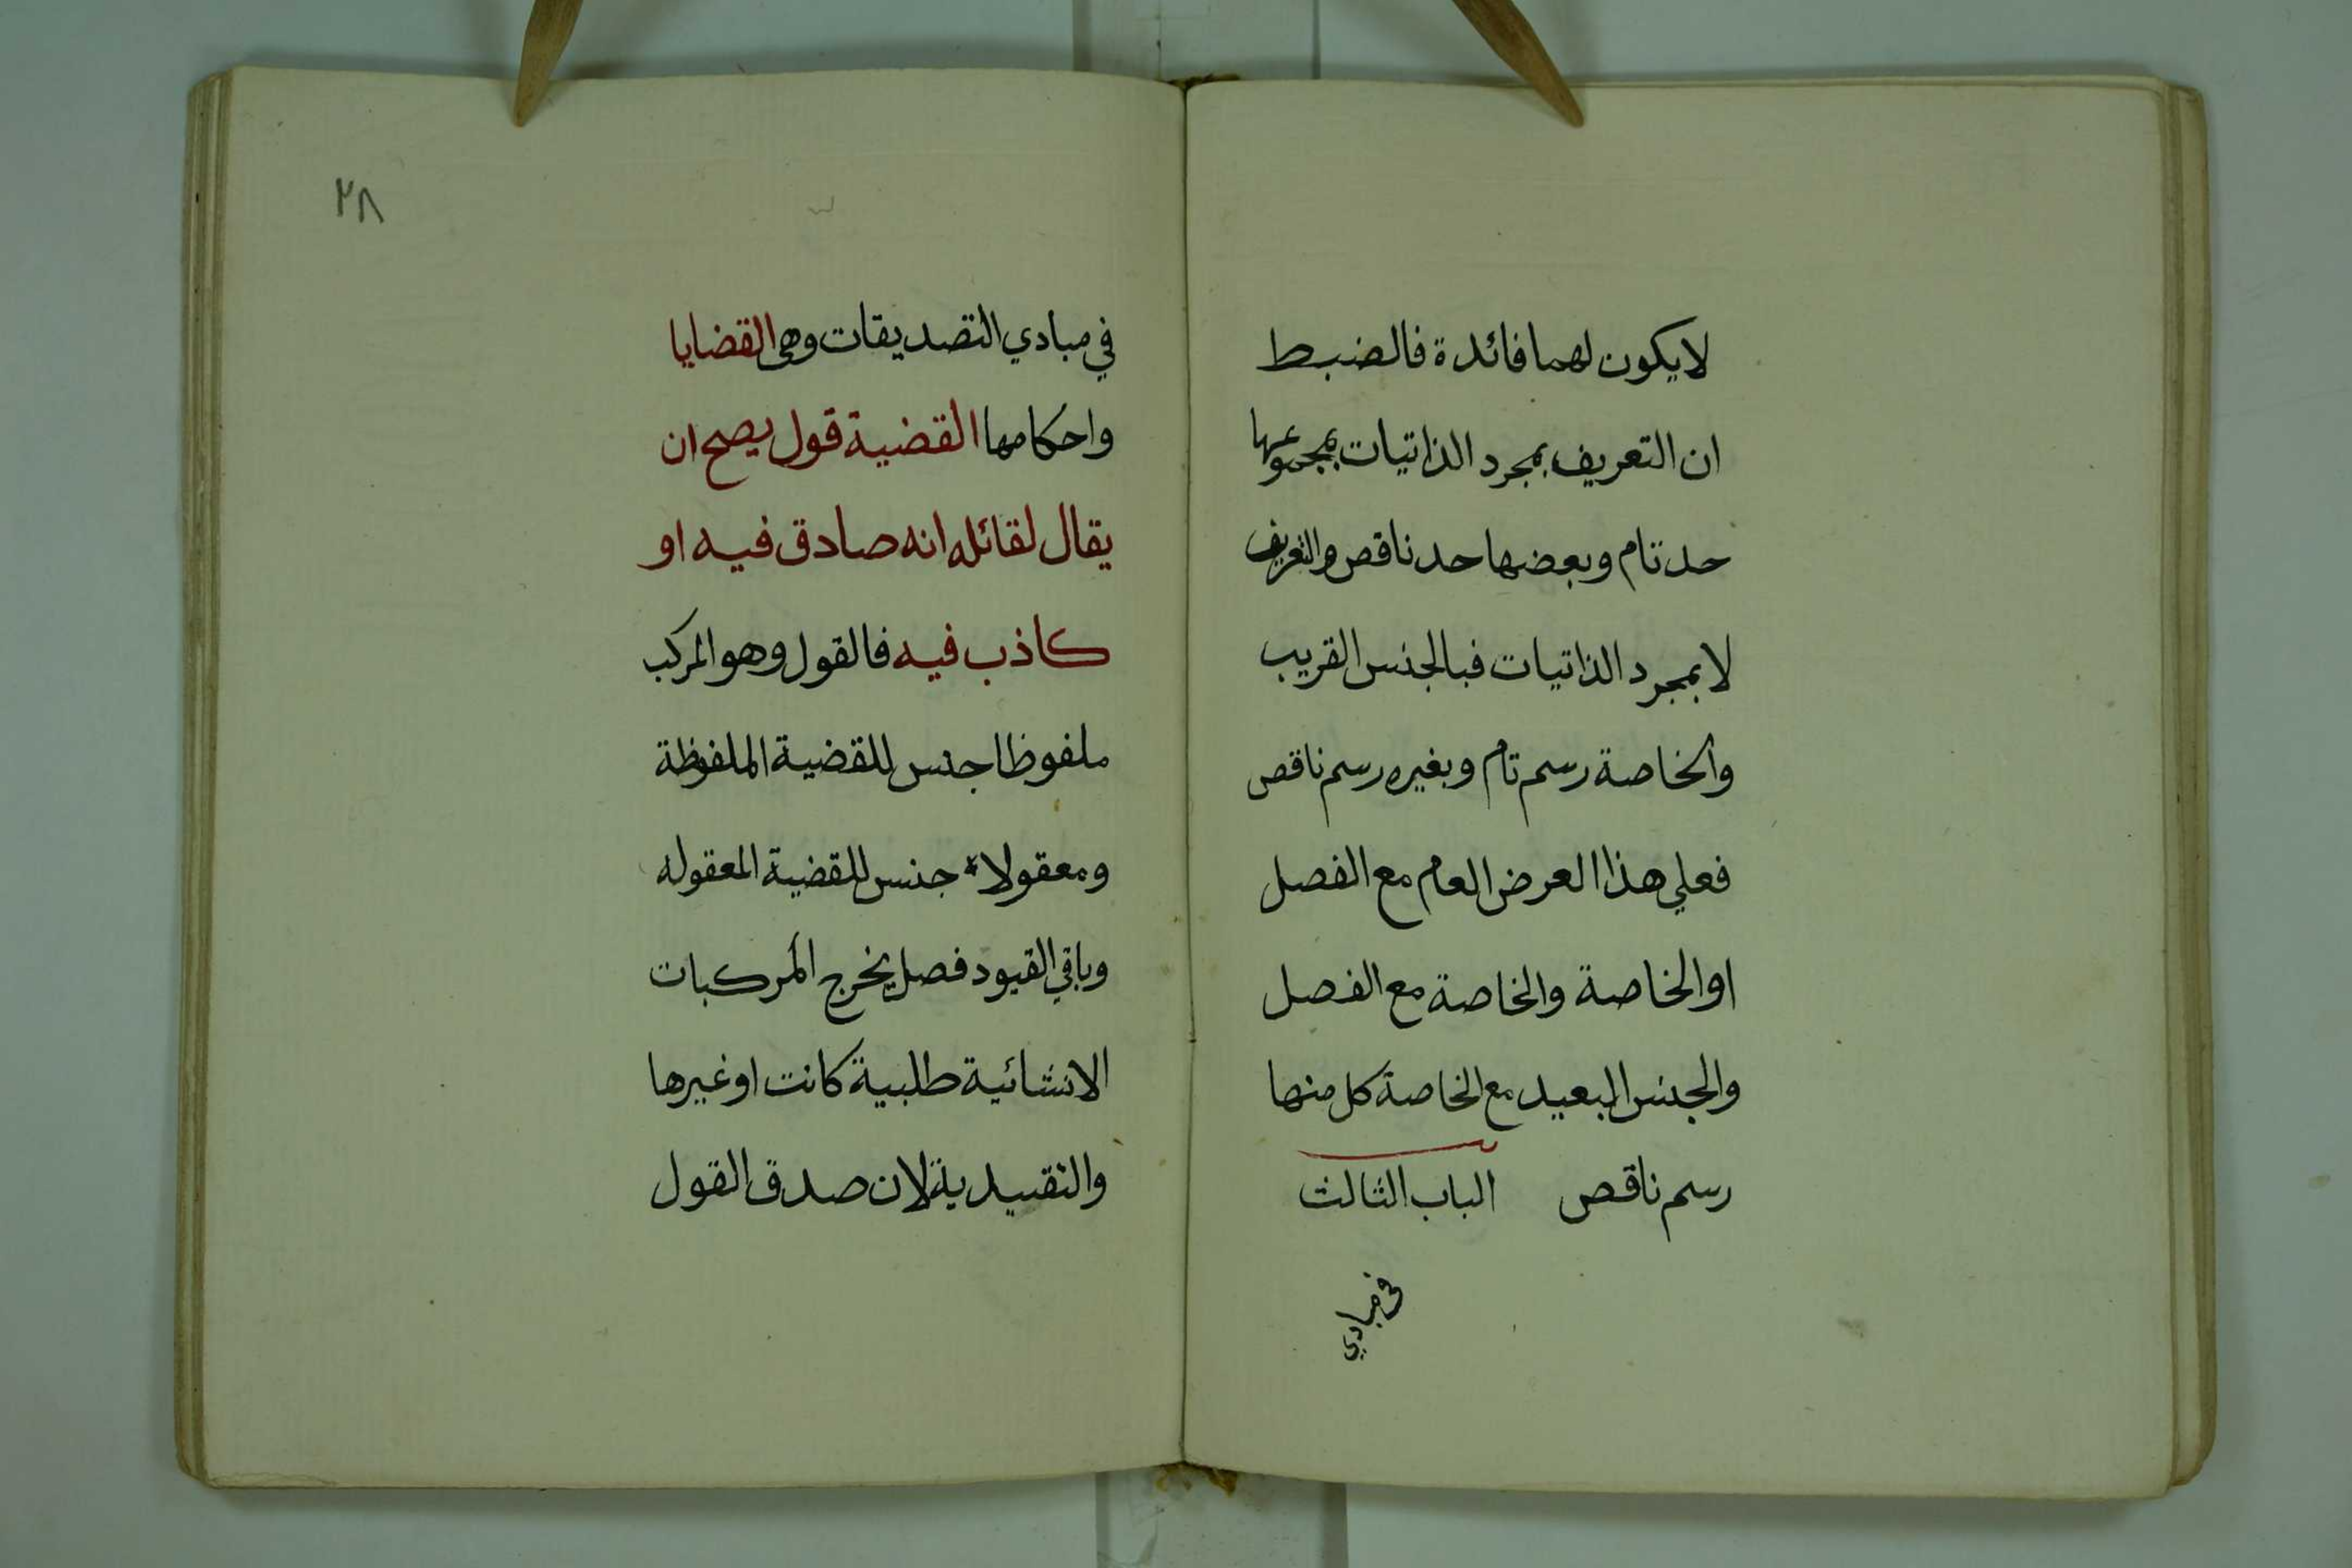 لا يكون لهما فائدة فالضبط
ان التعريف بمجرد الذاتيات بمجموعها
حد تام وبعضها حد ناقص والتعريف
لا بمجرد الذاتيات فبالجنس القريب
والخاصة رسم تام وبغيره رسم ناقص
فعلي هذا العرض العام مع الفصل
او الخاصة والخاصة مع الفصل
والجنس البعيد مع الخاصة كل منها
رسم ناقص الباب الثالث
في مبادي
٢٨
في مبادي التصديقات وهي القضايا
واحكامها القضية قول يصح ان
يقال لقائله انه صادق فيه او
كاذب فيه فالقول وهو المركب
ملفوظا جنس للقضية الملفوظة
ومعقولا جنس للقضية المعقوله
وباقي القيود فصل يخرج المركبات
الانشائية طلبية كانت او غيرها
والتقييدية لان صدق القول